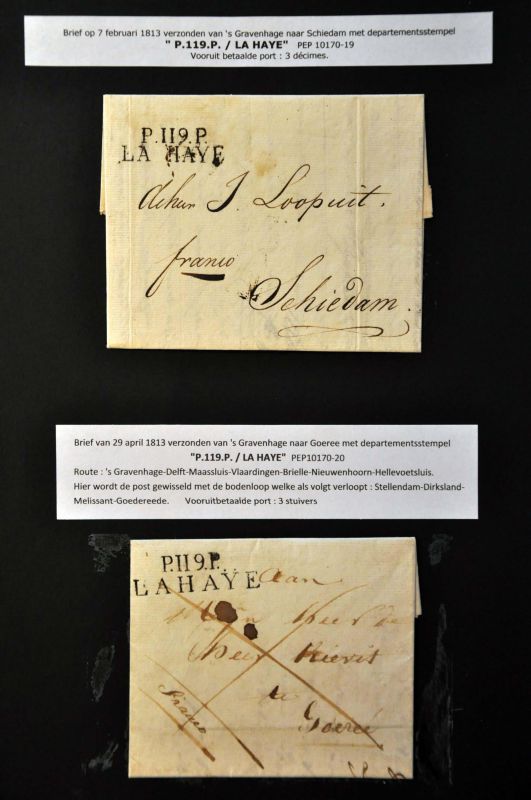 Brief op 7 februari 1813 verzonden van 's Gravenhage naar Schiedam met departementsstempel
" P.119.P. / LA HAYE" PEP 10170-19
Vooruit betaalde port : 3 décimes.
P.119.P.
LA HAYE
J. Loopuit.
franco
Schiedam.
Brief van 29 april 1813 verzonden van 's Gravenhage naar Goeree met departementsstempel
"P.119.P. / LA HAYE" PEP10170-20
Route : 's Gravenhage-Delft-Maassluis-Vlaardingen-Brielle-Nieuwenhoorn-Hellevoetsluis.
Hier wordt de post gewisseld met de bodenloop welke als volgt verloopt : Stellendam-Dirksland-
Melissant-Goedereede. Vooruitbetaalde port : 3 stuivers
P.119.P.
LAHAYE aan
Heer
de
franco Goereé